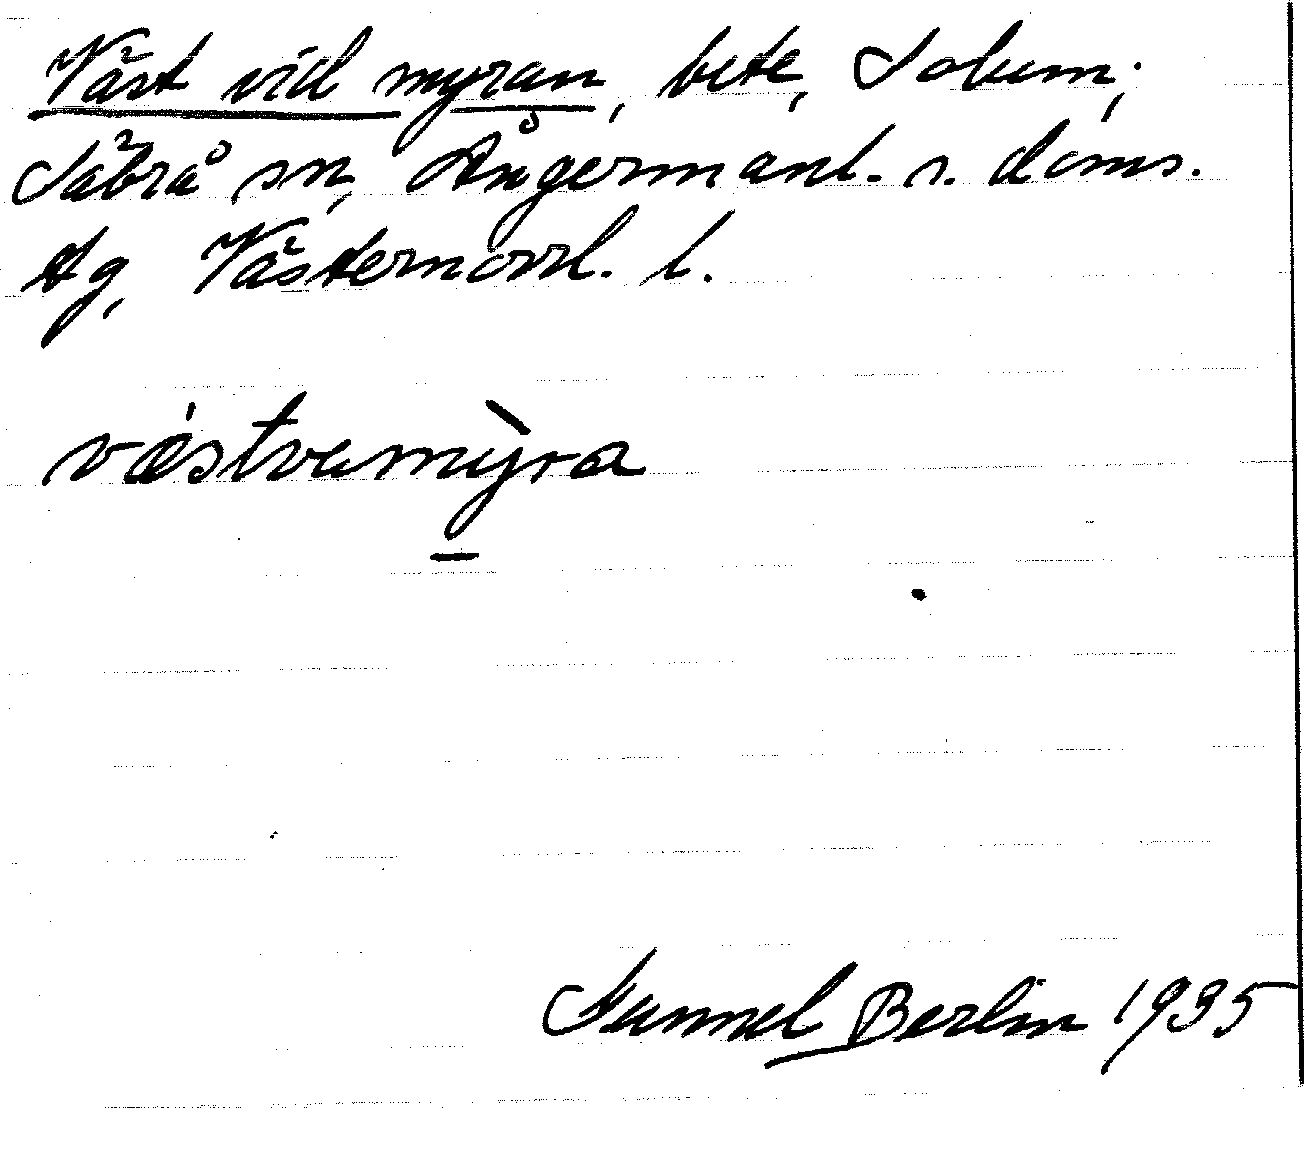 Väst vid myran, bete, Solum,
Säbrå sn, Ångermanl. s. doms.
tg, Västernorrl. l.
vǽstvamỳra
Gunnel Berlin 1935